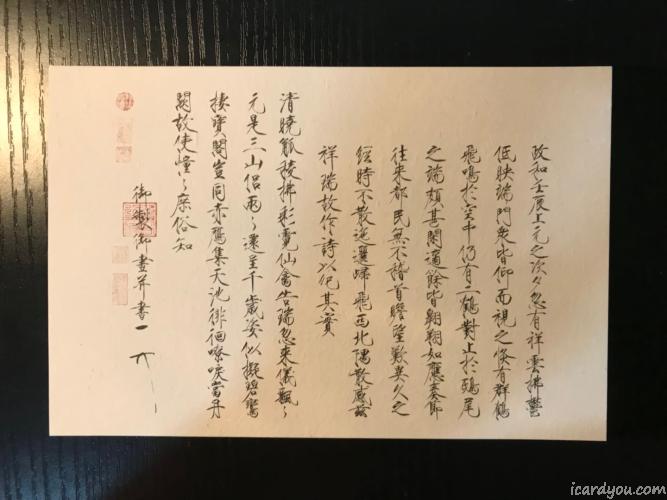 政和壬辰上元之次夕忽有祥雲拂欝
低映端門衆皆仰而視之倏有群鶴
飛鳴於空中仍有二鶴對止於鴟尾
之端頗甚閑適餘皆翱翔如應奏節
往来都民無不稽首瞻望歎異久之
經時不散迤邐歸飛西北隅散感茲
祥瑞故作詩以紀其實
清曉觚稜拂彩霓仙禽告瑞忽来儀飄々
元是三山侶兩々還呈千歲姿似擬碧鸞
棲寶閣豈同赤鴈集天池徘徊嘹唳當丹
闕故使憧々庶俗知
御製御畫并書
icardyou.com